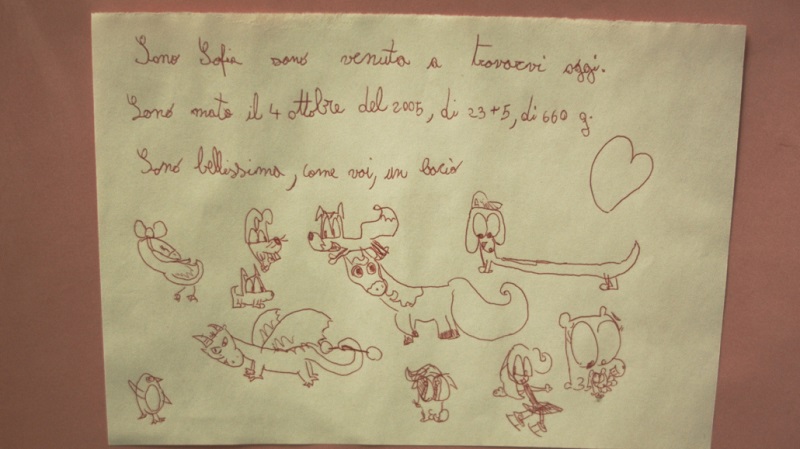 Sono Sofia sono venuta a trovarvi oggi.
Sono nato il 4 ottobre del 2005, di 23+5, di 660 g.
Sono bellissima, come voi, un bacio